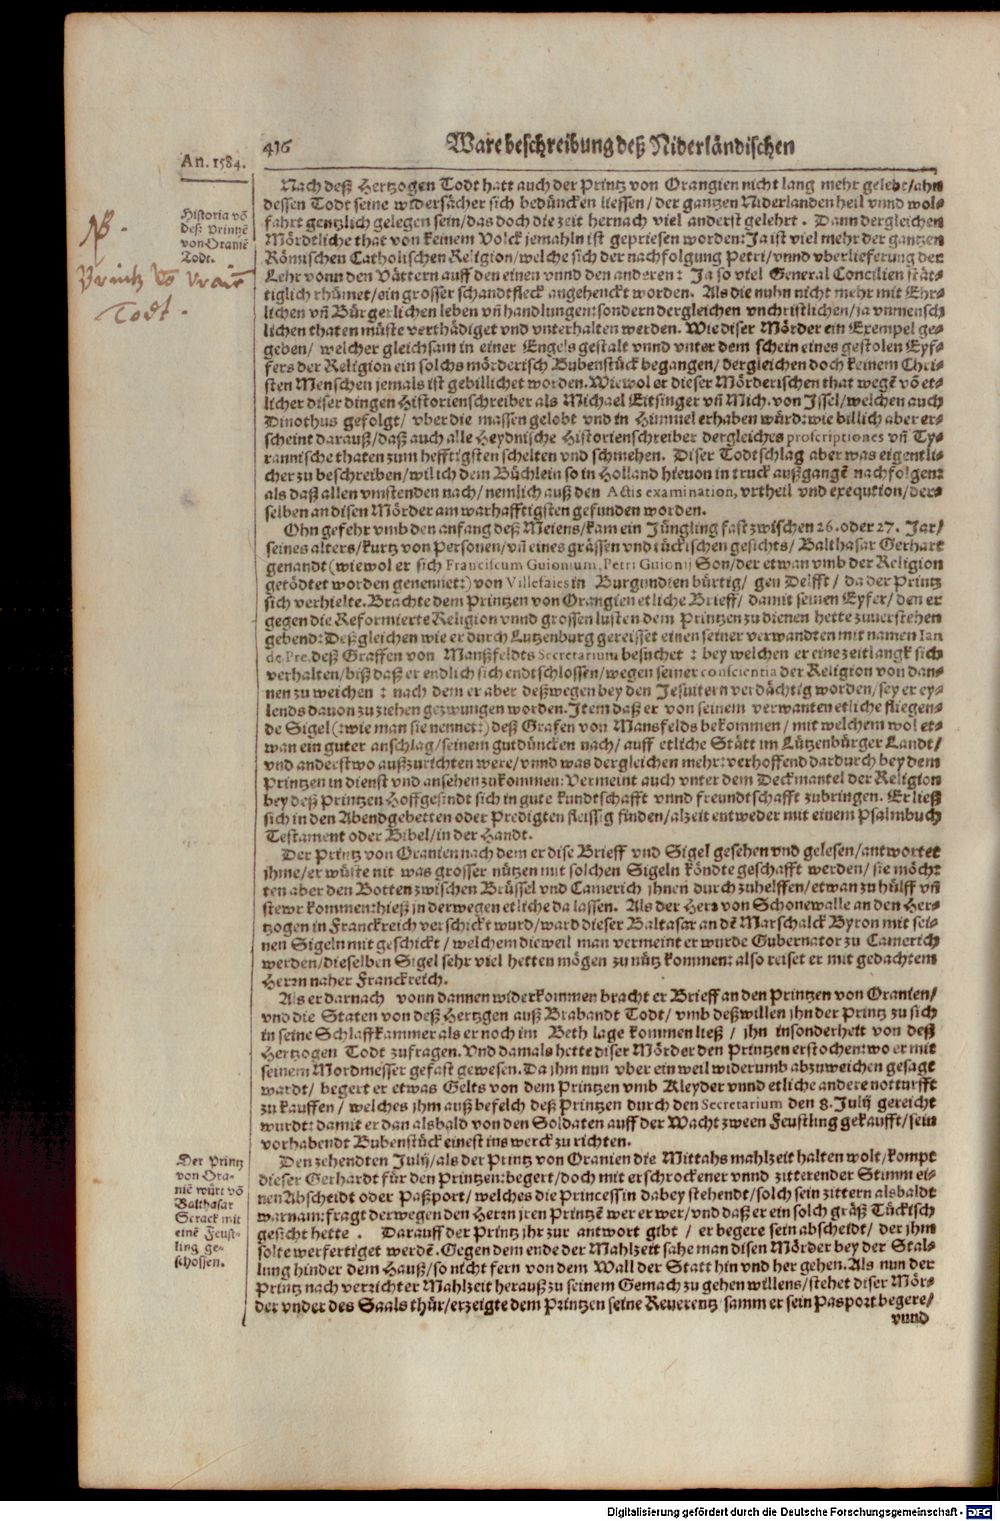 416
Ware beschreibung deß Niderländischen
An. 1584.
Historia võ
deß Printzẽ
von Oraniẽ
Todt.
NB.
Printz vo Vraiẽ
Todt.
Nach deß Hertzogen Todt hatt auch der Printz von Orangien nicht lang mehr gelebt/ahn
dessen Todt seine widersächer sich bedüncken liessen/der gantzen Niderlanden heil vnnd wol-
fahrt gentzlich gelegen sein/das doch die zeit hernach viel anderst gelehrt. Dann dergleichen
Mördtliche that von keinem Volck jemahln ist gepriesen worden: Ja ist viel mehr der gantzen
Römischen Catholischen Religion/welche sich der nachfolgung Petri/vnnd vberlieferung der
Lehr vonn den Vättern auff den einen vnnd den anderen: Ja so viel General Concilien stät-
tiglich rhümet/ein grosser schandtfleck angehenckt worden. Als die nuhn nicht mehr mit Ehr-
lichen vñ Bürgerlichen leben vñ handlungen: sondern dergleichen vnchristlichen/ja vnmensch
lichen thaten müste verthädiget vnd vnterhalten werden. Wie diser Mörder ein Exempel ge-
geben/ welcher gleichsam in einer Engels gestalt vnnd vnter dem schein eines gestolen Eyf-
fers der Religion ein solchs mörderisch Bubenstück begangen/dergleichen doch keinem Chri-
sten Menschen jemals ist gebillichet worden. Wiewol er dieser Mörderischen that wegẽ võ et-
licher diser dingen Historienschreiber als Michael Eitsinger vñ Mich. von Jssel/welchen auch
Dinothus gefolgt/ vber die massen gelobt vnd in Himmel erhaben würd: wie billich aber er-
scheint darauß/daß auch alle Heydnische Historienschreiber dergleiches proscriptiones vñ Ty-
rannische thaten zum hefftigsten schelten vnd schmehen. Diser Todtschlag aber was eigentli-
cher zu beschreiben/wil ich dem Büchlein so in Holland hievon in truck außgangẽ nachfolgen:
als daß allen vmstenden nach/nemlich auß den Actis examination, vrtheil vnd exeqution/der-
selben an disen Mörder am warhafftigsten gefunden worden.
Ohn gefehr vmb den anfang deß Meiens/kam ein Jüngling fast zwischen 26. oder 27. Jar/
seines alters/kurtz von Personen/vñ eines grässen vnd tückischen gesichts/Balthasar Gerhart
genandt (wiewol er sich Franciscum Guionium, Petri Guionij Son/der etwan vmb der Religion
getödtet worden genennet:) von Villefaies in Burgundien bürtig/ gen Delfft/ da der Printz
sich verhielte. Brachte dem Printzen von Orangien etliche Brieff/ damit seinen Eyfer/den er
gegen die Reformierte Religion vnnd grossen lusten dem Printzen zu dienen hette zuverstehen
gebend: Deßgleichen wie er durch Lutzenburg gereisset einen seiner verwandten mit namen Ian
de Pre, deß Graffen von Manßfeldts Secretarium besuchet: bey welchen er eine zeitlangk sich
verhalten/biß daß er endlich sich endtschlossen/wegen seiner conscientia der Religion von dan-
nen zu weichen: nach dem er aber deßwegen bey den Jesuitern verdächtig worden/sey er ey-
lends davon zu ziehen gezwungen worden. Jtem daß er von seinem verwanten etliche fliegen-
de Sigel (:wie man sie nennet:) deß Grafen von Mansfelds bekommen/ mit welchem wol et-
wan ein guter anschlag/seinem gutdüncken nach/ auff etliche Stätt im Lützenbürger Landt/
vnd anderstwo außzurichten were/vnnd was dergleichen mehr: verhoffend dardurch bey dem
Printzen in dienst vnd ansehen zukommen: Vermeint auch vnter dem Deckmantel der Religion
bey deß Printzen Hoffgesindt sich in gute kundtschafft vnnd freundtschafft zubringen. Er ließ
sich in den Abendgebetten oder Predigten fleissig finden/alzeit entweder mit einem Psalmbuch
Testament oder Bibel/in der Handt.
Der Printz von Oranien nach dem er dise Brieff vnd Sigel gesehen vnd gelesen/antwortet
jhme/er wüste nit was grosser nützen mit solchen Sigeln köndte geschafft werden/sie möch-
ten aber den Botten zwischen Brüssel vnd Camerich jhnen durch zuhelffen/etwan zu hülff vñ
stewr kommen: hieß jn derwegen etliche da lassen. Als der Herr von Schonewalle an den Her-
tzogen in Franckreich verschickt wurd/ward dieser Baltasar an dẽ Marschalck Byron mit sei-
nen Sigeln mit geschickt/welchem dieweil man vermeint er wurde Gubernator zu Camerich
werden/dieselben Sigel sehr viel hetten mögen zu nütz kommen: also reiset er mit gedachtem
Herrn naher Franckreich.
Als er darnach vonn dannen widerkommen bracht er Brieff an den Printzen von Oranien/
vnd die Staten von deß Hertzgen auß Brabandt Todt/ vmb deßwillen jhn der Printz zu sich
in seine Schlaffkammer als er noch im Beth lage kommen ließ/ jhn insonderheit von deß
Hertzogen Todt zufragen. Vnd damals hette diser Mörder den Printzen erstochen: wo er mit
seinem Mordmesser gefast gewesen. Da jhm nun vber ein weil widerumb abzuweichen gesagt
wardt/ begert er etwas Gelts von dem Printzen vmb Kleyder vnnd etliche andere notturfft
zu kauffen/ welches jhm auß befelch deß Printzen durch den Secretarium den 8. Julij gereicht
wurdt: damit er dan alsbald von den Soldaten auff der Wacht zween Feustling gekaufft/sein
vorhabendt Bubenstück einest ins werck zu richten.
Der Printz
von Ora-
niẽ würt võ
Balthasar
Serack mit
einẽ Feust-
ling ge-
schossen.
Den zehendten Julij/als der Printz von Oranien die Mittahs mahlzeit halten wolt/kompt
dieser Gerhardt für den Printzen: begert/doch mit erschrockener vnnd zitterender Stimm ei-
nen Abscheidt oder Paßport/welches die Princessin dabey stehendt/solch sein zittern alsbaldt
warnam: fragt derwegen den Herrn jren Printzẽ wer er wer/vnd daß er ein solch gräß Tückisch
gesicht hette. Darauff der Printz jhr zur antwort gibt/ er begere sein abscheidt/ der jhm
solte werfertiget werdẽ. Gegen dem ende der Mahlzeit sahe man disen Mörder bey der Stal-
lung hinder dem Hauß/so nicht fern von dem Wall der Statt hin vnd her gehen. Als nun der
Printz nach verrichter Mahlzeit herauß zu seinem Gemach zu gehen willens/stehet diser Mör-
der vnder des Saals thür/erzeigte dem Printzen seine Reverentz/samm er sein Pasport begere/
vund
Digitalisierung gefördert durch die Deutsche Forschungsgemeinschaft - DFG